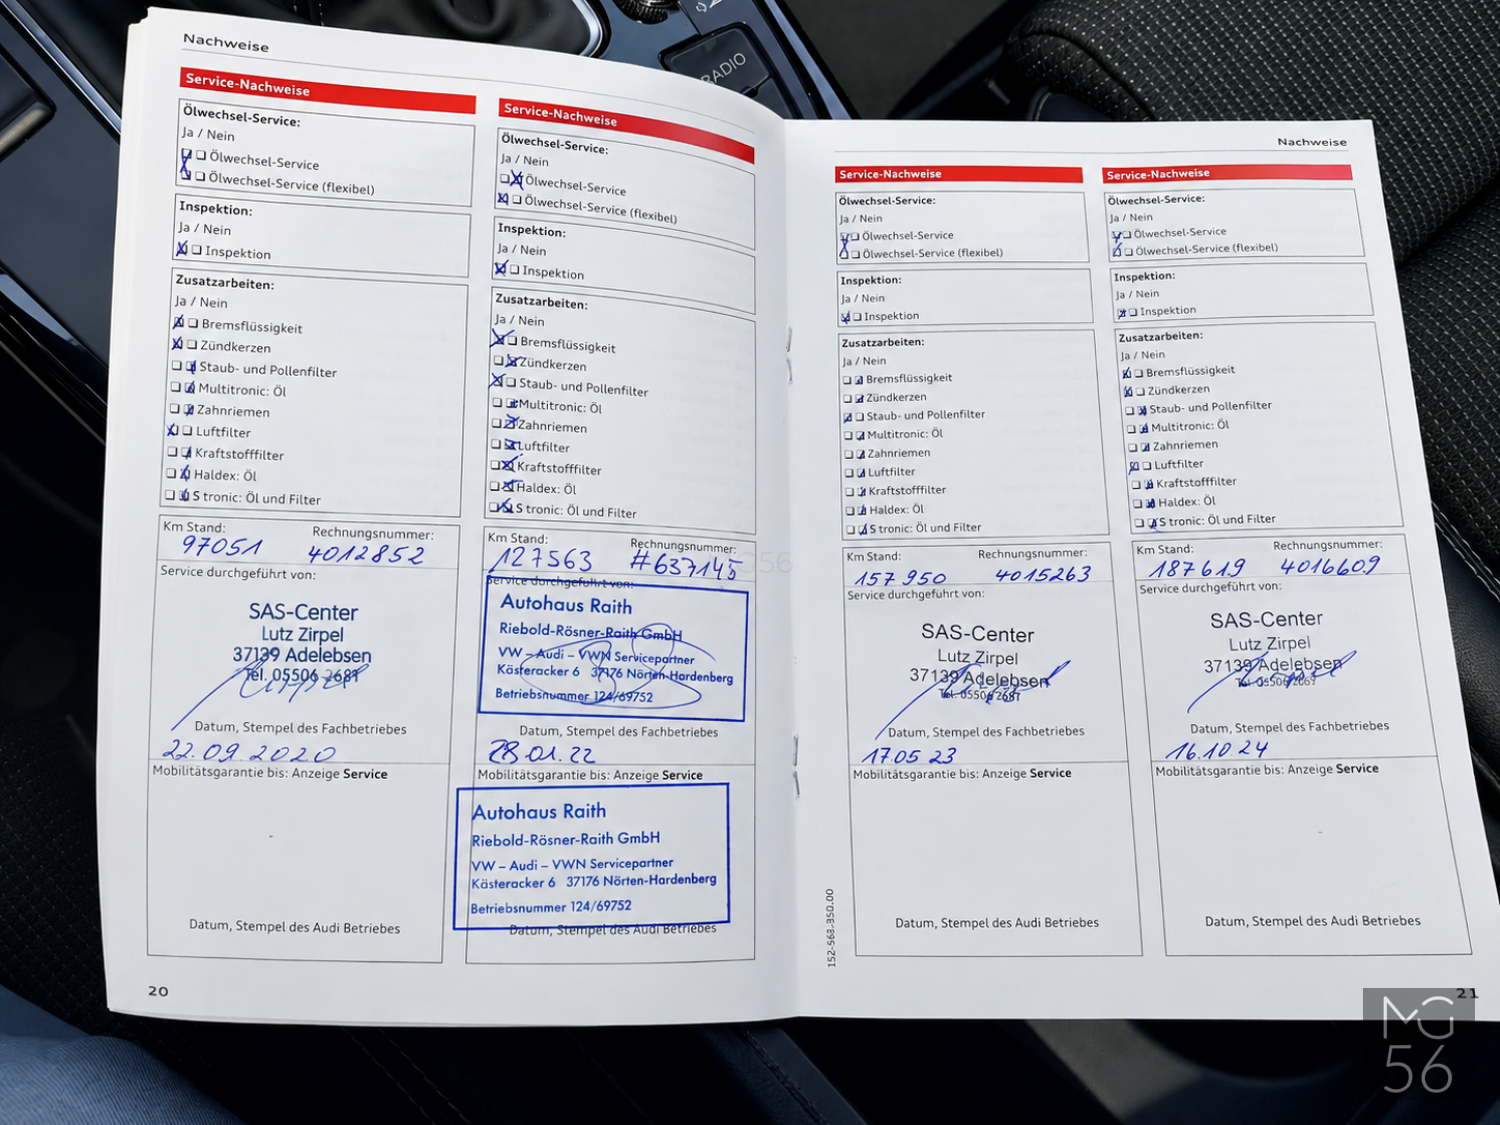 RADIO
Nachweise
Service-Nachweise
Ölwechsel-Service:
Ja / Nein
Ölwechsel-Service
Ölwechsel-Service (flexibel)
Inspektion:
Ja / Nein
Inspektion
Zusatzarbeiten:
Ja / Nein
Bremsflüssigkeit
Zündkerzen
Staub- und Pollenfilter
Multitronic: Öl
Zahnriemen
Luftfilter
Kraftstofffilter
Haldex: Öl
S tronic: Öl und Filter
Km Stand: Rechnungsnummer:
97051 4012852
Service durchgeführt von:
SAS-Center
Lutz Zirpel
37139 Adelebsen
Tel. 05506 2681
Datum, Stempel des Fachbetriebes
22.09.2020
Mobilitätsgarantie bis: Anzeige Service
Datum, Stempel des Audi Betriebes
20
Service-Nachweise
Ölwechsel-Service:
Ja / Nein
Ölwechsel-Service
Ölwechsel-Service (flexibel)
Inspektion:
Ja / Nein
Inspektion
Zusatzarbeiten:
Ja / Nein
Bremsflüssigkeit
Zündkerzen
Staub- und Pollenfilter
Multitronic: Öl
Zahnriemen
Luftfilter
Kraftstofffilter
Haldex: Öl
S tronic: Öl und Filter
Km Stand: Rechnungsnummer:
127563 #637145
Service durchgeführt von:
Autohaus Raith
Riebold-Rösner-Raith GmbH
VW – Audi – VWN Servicepartner
Kästeracker 6 37176 Nörten-Hardenberg
Betriebsnummer 124/69752
Datum, Stempel des Fachbetriebes
28.01.22
Mobilitätsgarantie bis: Anzeige Service
Autohaus Raith
Riebold-Rösner-Raith GmbH
VW – Audi – VWN Servicepartner
Kästeracker 6 37176 Nörten-Hardenberg
Betriebsnummer 124/69752
Datum, Stempel des Audi Betriebes
Nachweise
Service-Nachweise
Ölwechsel-Service:
Ja / Nein
Ölwechsel-Service
Ölwechsel-Service (flexibel)
Inspektion:
Ja / Nein
Inspektion
Zusatzarbeiten:
Ja / Nein
Bremsflüssigkeit
Zündkerzen
Staub- und Pollenfilter
Multitronic: Öl
Zahnriemen
Luftfilter
Kraftstofffilter
Haldex: Öl
S tronic: Öl und Filter
Km Stand: Rechnungsnummer:
157 950 4015263
Service durchgeführt von:
SAS-Center
Lutz Zirpel
37139 Adelebsen
Tel. 05506 2681
Datum, Stempel des Fachbetriebes
17.05 23
Mobilitätsgarantie bis: Anzeige Service
Datum, Stempel des Audi Betriebes
152-563-350.00
Service-Nachweise
Ölwechsel-Service:
Ja / Nein
Ölwechsel-Service
Ölwechsel-Service (flexibel)
Inspektion:
Ja / Nein
Inspektion
Zusatzarbeiten:
Ja / Nein
Bremsflüssigkeit
Zündkerzen
Staub- und Pollenfilter
Multitronic: Öl
Zahnriemen
Luftfilter
Kraftstofffilter
Haldex: Öl
S tronic: Öl und Filter
Km Stand: Rechnungsnummer:
187619 4016609
Service durchgeführt von:
SAS-Center
Lutz Zirpel
37139 Adelebsen
Tel. 05506 2681
Datum, Stempel des Fachbetriebes
16.10.24
Mobilitätsgarantie bis: Anzeige Service
Datum, Stempel des Audi Betriebes
21
MG
56